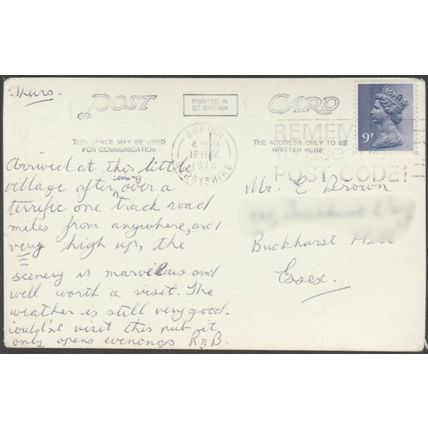 Thurs.
POST CARD
PRINTED IN
GT BRITAIN
THIS SPACE MAY BE USED
FOR COMMUNICATION
THE ADDRESS ONLY TO BE
WRITTEN HERE
BUXTON
4
18 MAY
1978
DERBYSHIRE
REMEMBER
POSTCODE!
9P
Arrived at this little
village after coming over a
terrific one track road
miles from anywhere, and
very high up, the
scenery is marvelous and
well worth a visit. The
weather is still very good.
couldn't visit this pub it
only opens evenings R&B.
Mr. E Brown
Buckhurst Hill
Essex.